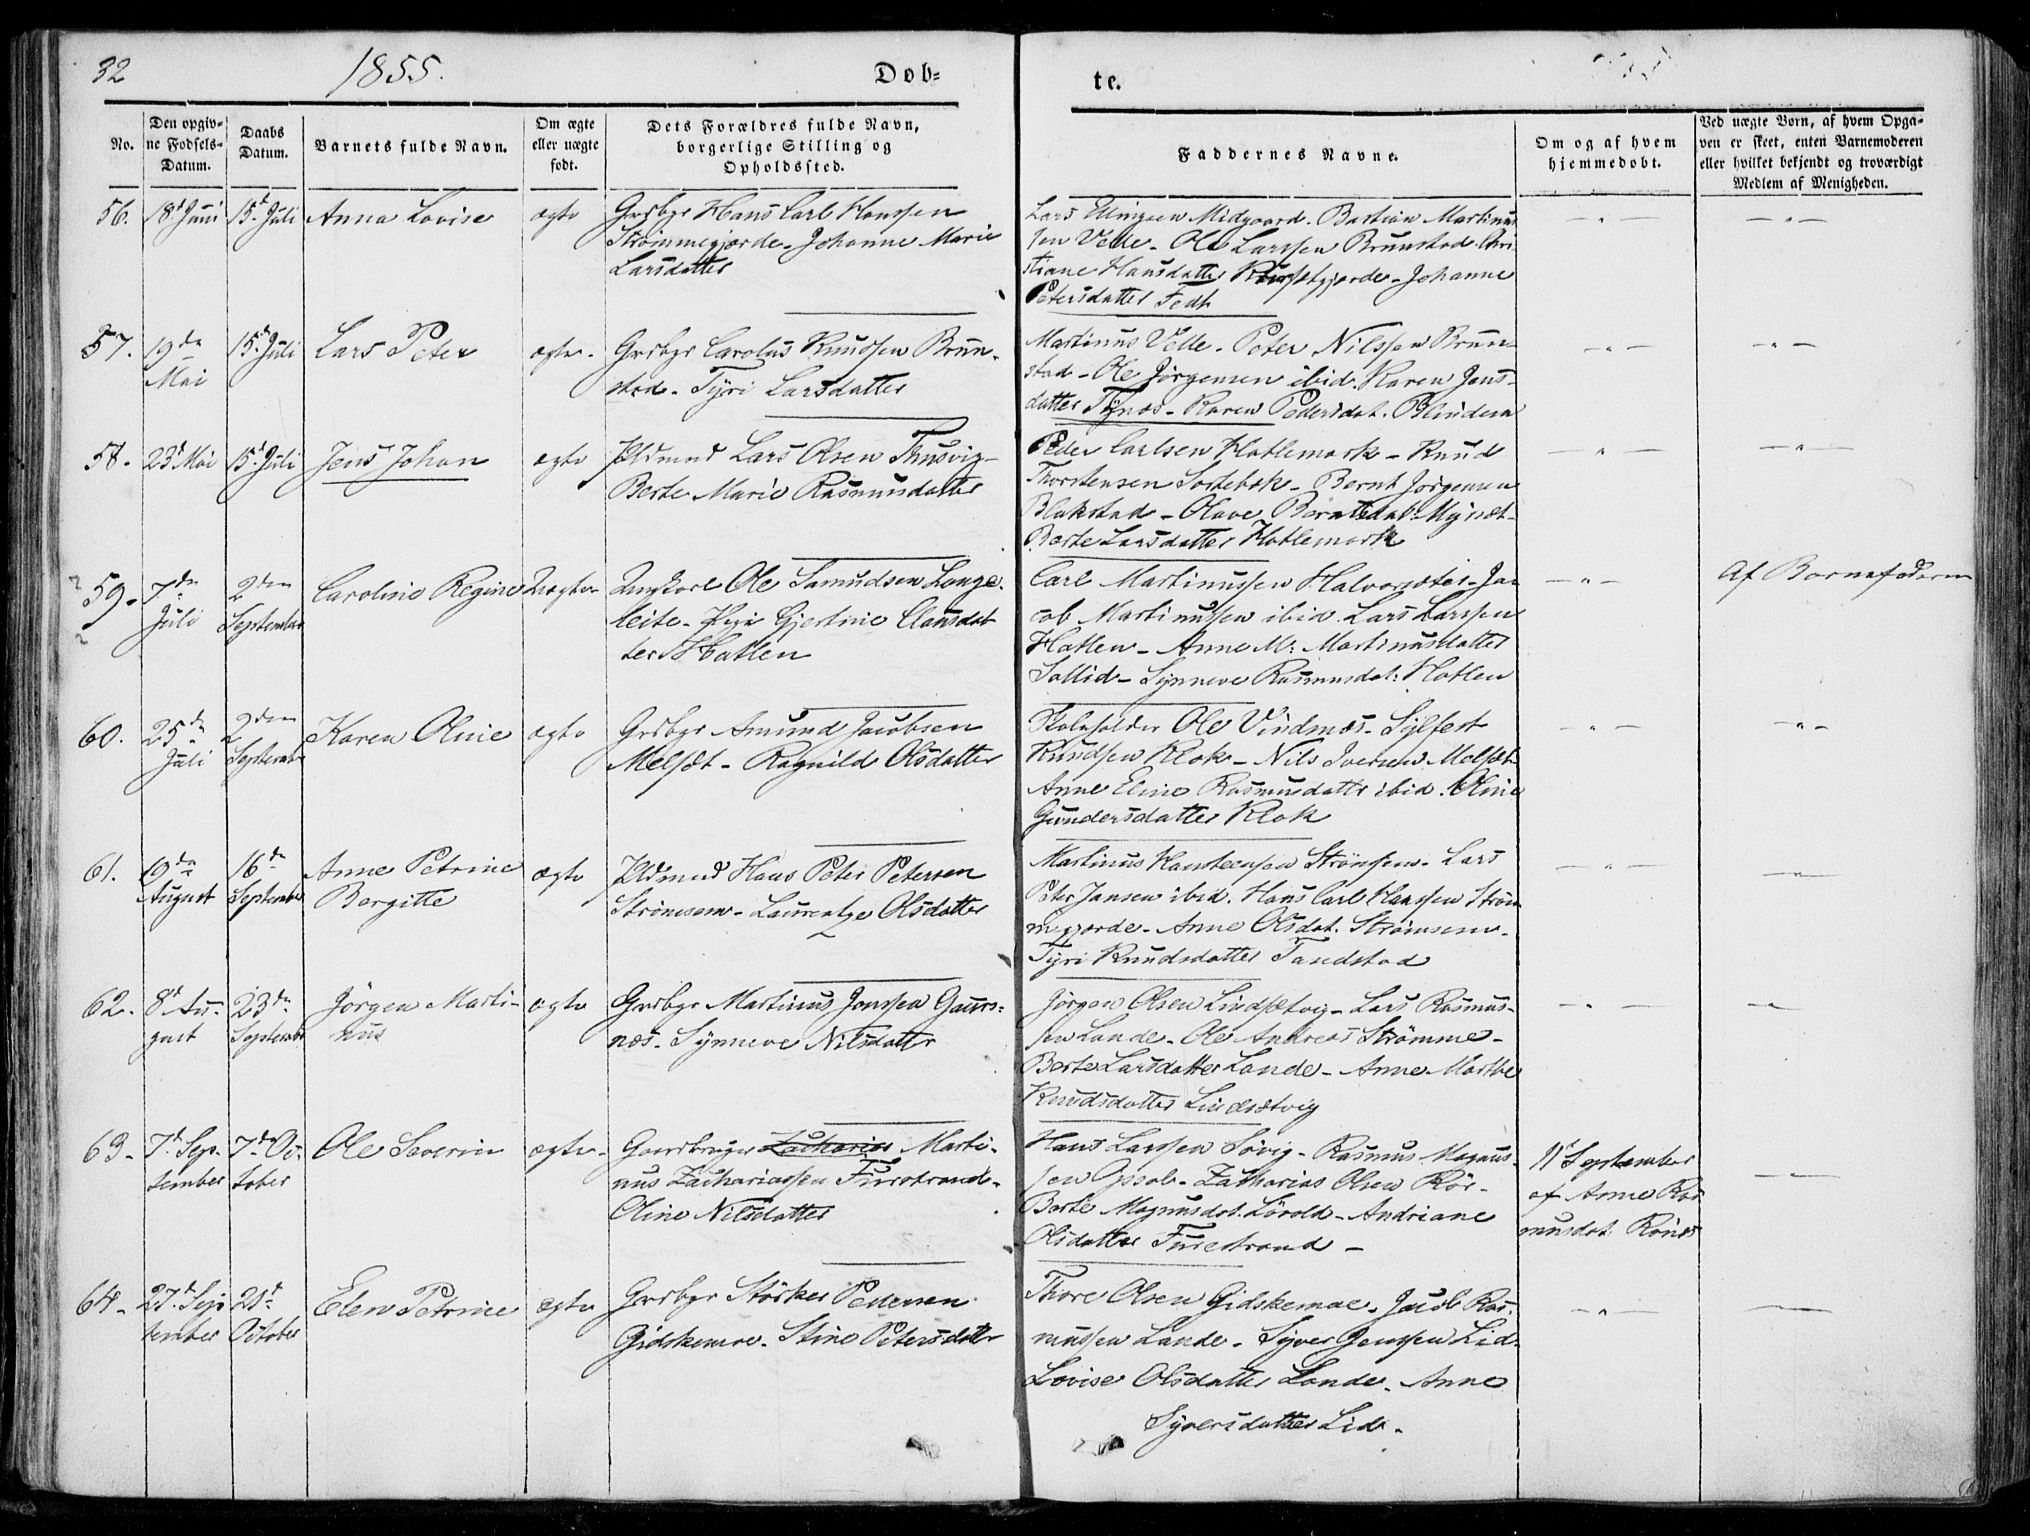 32
1855.
Døb-
te.
No.
Den opgiv-
ne Fødsels-
Datum.
Daabs
Datum.
Barnets fulde Navn.
Om ægte
eller uægte
født.
Dets Forældres fulde Navn,
borgerlige Stilling og
Opholdssted.
Faddernes Navne.
Om og af hvem
hjemmedøbt.
Ved uægte Børn, af hvem Opga-
ven er skeet, enten Barnemoderen
eller hvilket bekjendt og troværdigt
Medlem af Menigheden.
56. 18d Juni 15d Juli Anna Lovise ægte
Grdbgr Hans Carl Hanssen
Strømmegjærde - Johanne Marie
Larsdatter
Lars Ellingsen Midgaard. Bastian Martinus-
sen Velle - Ole Larssen Brunstad. Chri-
stiane Hansdatter - Johanne
Petersdatter Fedt
57. 19de Mai 15d Juli Lars Peter ægte -
Grdbgr Carolus Knudssen Brun-
stad - Tyri Larsdatter
Martinus Velle - Peter Nilssen Brun-
stad - Ole Jørgensen ibid. Karen Jens-
datter Tynæs - Karen Pedersdat. Blindem
58. 23d Mai 15d Juli Jens Johan ægte
Lars Olsen Thusvig -
Berte Marie Rasmusdatter
Peder Carlsen Hatlemark - Knud
Thorstensen Sortebak - Bernt Jørgensen
Blakstad - Olave Berntsdat: Myrset -
Berte Larsdatter Hatlemark
59. 7de Juli 2den September Caroline Regine Uægte
Ungkarl Ole Samudsen Lange-
leite - Pige Gjertine Clausdat-
ter Hatlen
Carl Martinussen Halvorsæter - Ja-
cob Martinussen ibid. Lars Larssen
Hatlen - Anne M: Martinusdatter
Sollid - Synneve Rasmusdat: Hatlen
Af Barnefaderen
60. 25de Juli 2den September Karen Oline ægte
Grdbgr Amund Jacobsen
Melsæt - Ragnild Olsdatter
Skoleholder Ole Vindnæs - Sylfest
Knudsen Klok - Nils Iversen Melsæt -
Anne Eline Rasmusdatter ibid. Oline
Gundersdatter Klok
61. 19de August 16de September Anne Petrine
Bergitte ægte
Hans Peter Petersen
Strømsem - Laurentze Olsdatter
Martinus Strømsem - Lars
Peter Jansen ibid. Hans Carl Hanssen Strøm-
megjærde - Anne Olsdat. Strømsem -
Tyri Knudsdatter Tandstad
62. 8d Au-
gust 23de September Jørgen Marti-
nus ægte
Grdbgr Martinus Jonssen Gaas-
næs - Synneve Nilsdatter
Jørgen Olsen Lindsætvig - Lars Rasmus-
sen Lande - Ole Andreas Strømme -
Berte Larsdatter Lande - Anne Marthe
Knudsdatter Lindsætvig
63 - 7d Sep-
tember 7de Oc-
tober Ole Severin ægte -
Gaardbruger Zacharias Marti-
nus Zachariassen Furstrand -
Oline Nilsdatter
Hans Larssen Søvig - Rasmus Magnus-
sen Opsal - Zacharias Olsen Rør -
Berte Magnusdat. Løvold - Andriane
Olsdatter Furestrand -
11t September
af Anne Ras-
musdat: Rønes
64 - 27d Sep-
tember 21d October Elen Petrine ægte
Grdbgr Størker Pedersen
Gidskemoe - Stine Petersdatter
Thore Olsen Gidskemoe - Jacob Ras-
mussen Lande - Syver Jenssen Lid -
Lovise Olsdatter Lande - Anne
Syversdatter Lid -